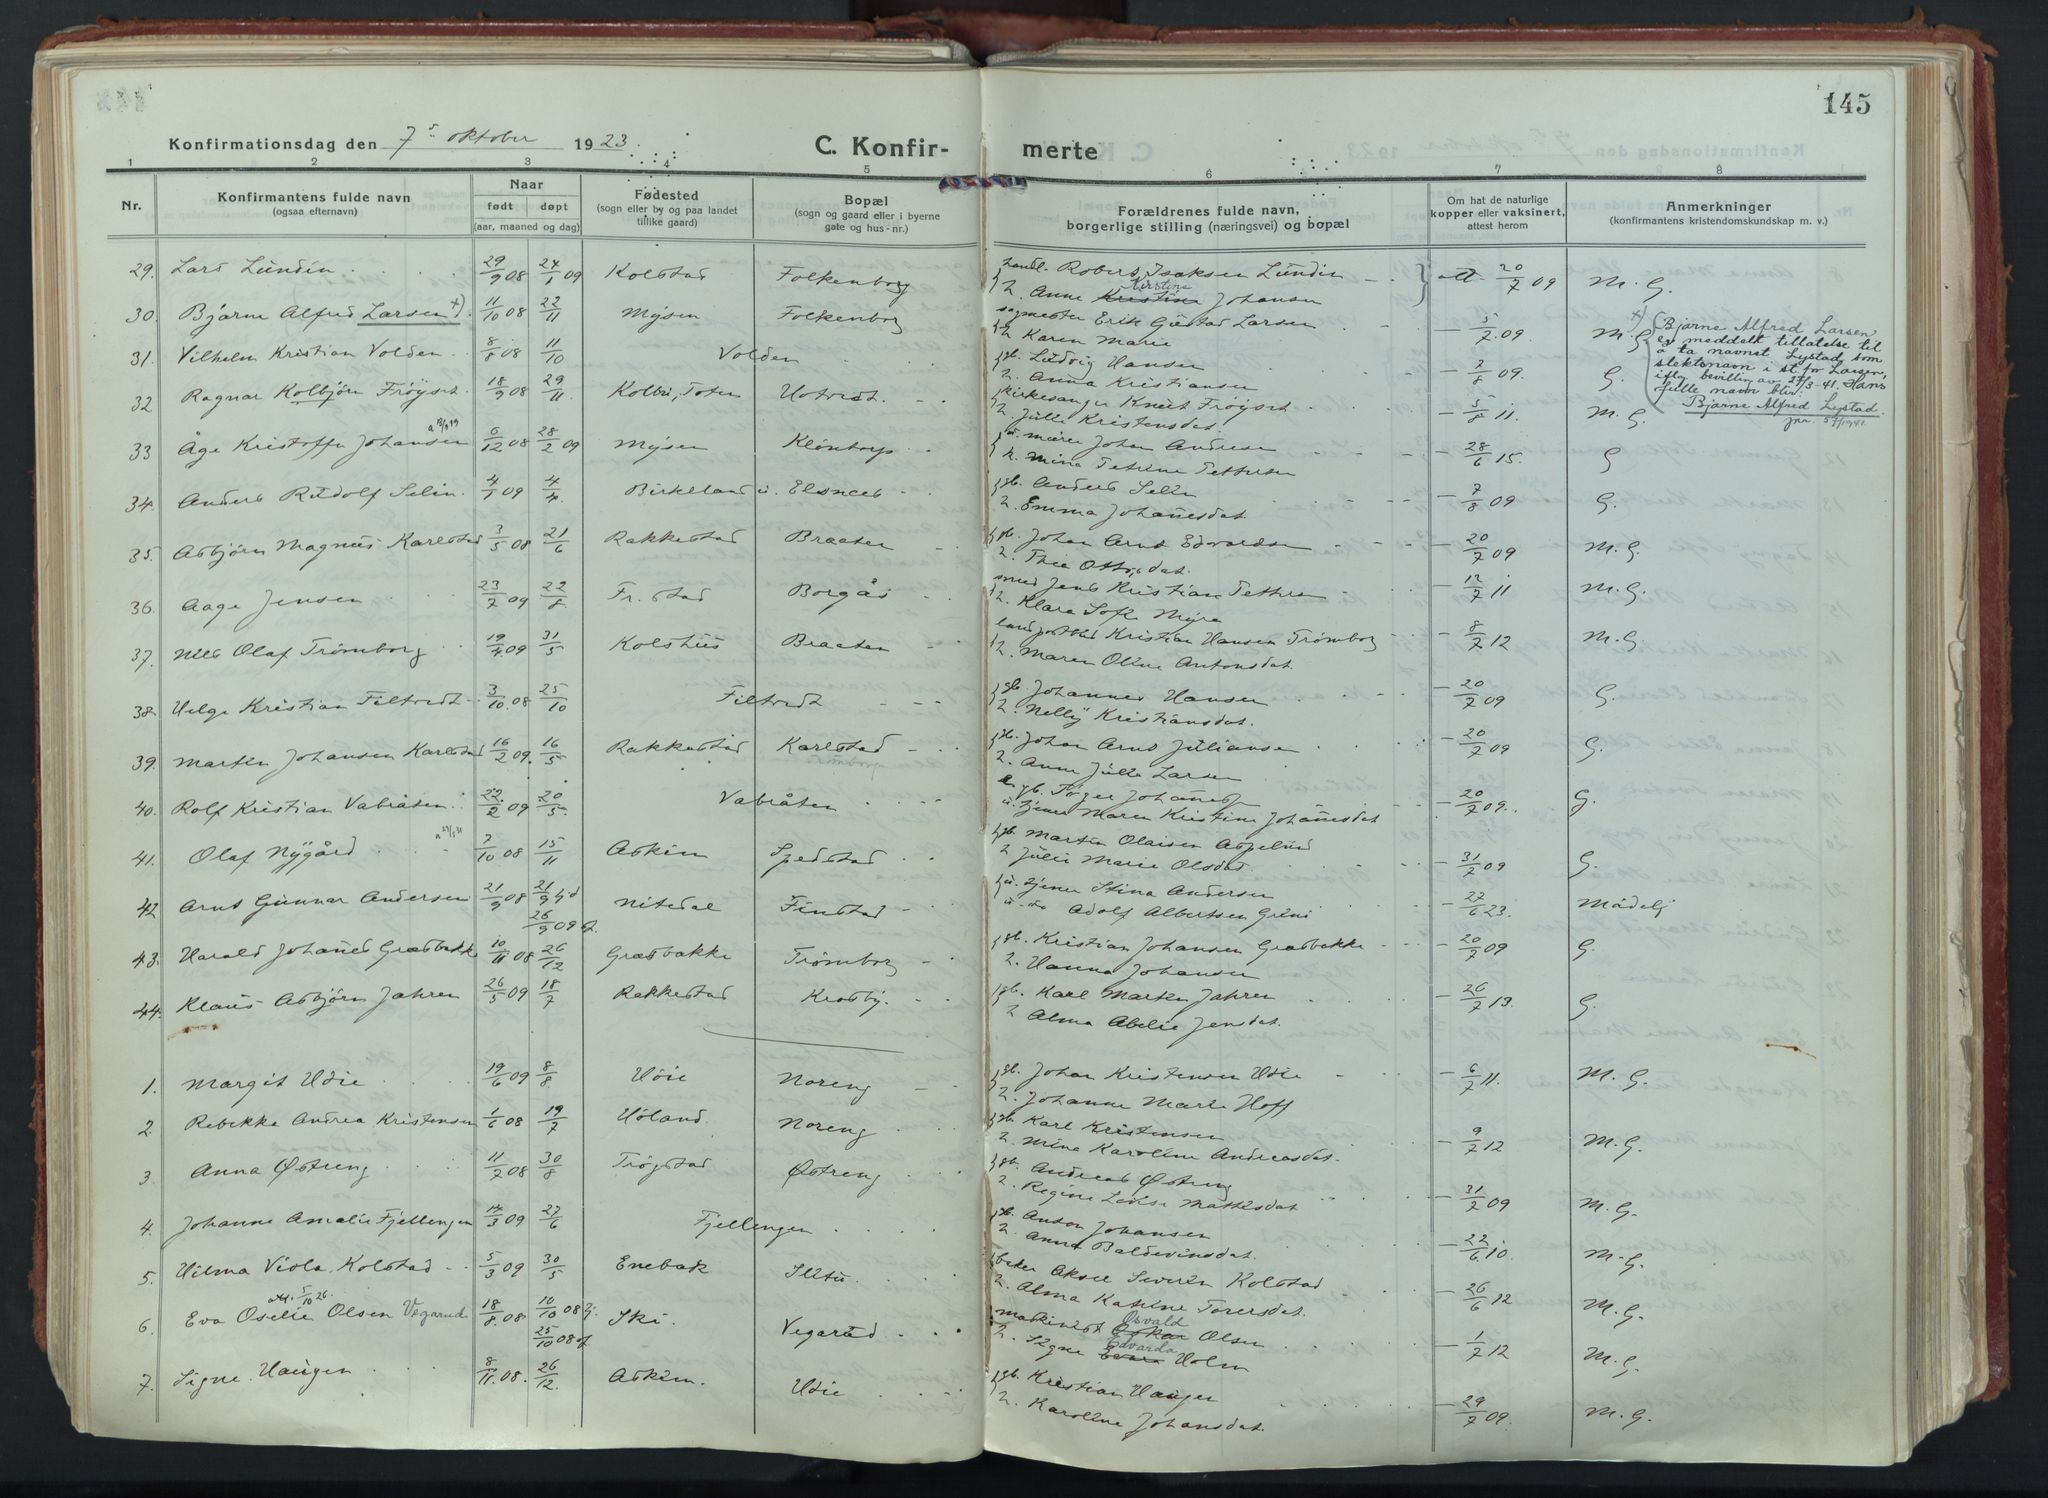 145
Konfirmationsdag den 7s oktober 1923.
C. Konfir- merte
1 2 3 4 5 6 7 8
Nr.
Konfirmantens fulde navn
(ogsaa efternavn)
Naar
født døpt
(aar, maaned og dag)
Fødested
(sogn eller by og paa landet
tillike gaard)
Bopæl
(sogn og gaard eller i byerne
gate og hus-nr.)
Forældrenes fulde navn,
borgerlige stilling (næringsvei) og bopæl
Om hat de naturlige
kopper eller vaksinert,
attest herom
Anmerkninger
(konfirmantens kristendomskundskap m. v.)
29. Lars Lundin 29/9 08 24/1 09 Kolstad Folkenborg Robert Isaksen Lundin 20/7 09 M. G.
2. Anne Kristine Kirstine Johansen
30. Bjarne Alfred Larsen x) 11/10 08 22/11 Mysen Folkenborg Erik Gustad Larsen 5/7 09 M. G.
2. Karen Marie
31. Vilhelm Kristian Volden 8/8 08 11/10 Volden gb. Ludvig Hansen 7/8 09. G.
2. Anna Kristiansen
32 Ragnar Kolbjørn Frøyset 18/9 08 29/11. Kolbu, Toten kirkesanger Knut Frøyset 5/8 11. M. G.
2. Julle Kristensdat.
x) Bjarne Alfred Larsen
er meddelt tillatelse til
å ta navnet Lystad som
slektsnavn i st. for Larsen,
iflg. bevilling av 27/3-41. Hans
fulle navn blir:
Bjarne Alfred Lystad.
33 Åge Kristoffer Johansen 6/12 08 28/2 09 Mysen Kløntorp Johan Andresen 28/6 15. G
Mina Petrine Pettersen
34. Anders Rudolf Selin. 4/1 09 4/4 Birkeland Elsnes gb. Anders Selin 7/8 09 G.
2. Emma Johanesdat.
35. Asbjørn Magnus Karlstad 3/5 08 21/6 Rakkestad Braaten gb. Johan Arnt Edvardsen 20/7 09 M. G.
2. Thea Ottersdat.
36. Aage Jensen 23/7 09 22/8 Fr.stad Borgås smed Jens Kristian Pettersen 12/7 11 M. G.
2. Klara Sofie Myra
37. Nils Olaf Trømborg 19/4 09 31/5 Kolshus Braaten landpostbud Kristian Hansen Trømborg 8/7 12 M. G.
2. Maren Oline Antonsdat.
38. Helge Kristian Filtvedt 3/10. 08 25/10 Filtvedt gb Johannes Hansen 20/7 09 G.
2. Nelly Kristiansdat.
39. Martin Johansen Karlstad 16/2 09. 16/5 Rakkestad Karlstad gb. Johan Arnt Juliansen 20/7 09 G.
2. Anne Julle Larsen
40. Rolf Kristian Vabråten 22/2 09 20/5 Vabråten gb. Tøger Johanes 20/7 09. G.
Maren Kristine Johanesdat
41. Olaf Nygård 7/10 08 15/11 Askim Spedstad gb. Martin Olaisen Aspelund 31/7 09 G.
2 Julie Marie Olsdat.
42 Arne Gunnar Andersen 21/9 08 21/9 hjd Nitedal Finstad Stina Andersen 27/6 23. Mådelig
26/9 09 f.
Adolf Albertsen Greni
43. Harald Johanes Græsbakke 10/11 08 26/12 Græsbakke Trømborg gb. Kristian Johansen Græsbakke 20/7 09 G.
2. Hanna Johansen
44. Klaus Asbjørn Jahren 26/5 09 18/7 Rakkestad Krosby. gb. Karl Martin Jahren 26/7 13. G.
2 Alma Abelie Jensdat.
1. Margit Udie 19/6 09 8/8 Udie Noreng gb. Johan Kristensen Udie 6/7 11. M. G.
2. Johanne Marie Hoff
2. Rebekka Andrea Kristensen 1/6 08 19/7 Høland. Noreng gb. Karl Kristensen 9/7 12 M. G.
2. Mina Karoline Andreasdat.
3. Anna Østreng 11/7 08 30/8 Trøgstad Østreng gb. Andreas Østreng 31/7 09 M. G.
2. Regine Lovise Mathisdat
4. Johanne Amalie Fjellengen 14/3 09 27/6 Fjellengen gb. Anton Johansen 22/6 10. M. G.
2. Anna Baldevinsdat.
5. Hilma Viola Kolstad 5/3 09 30/5 Enebak Slitu baker Aksel Severin Kolstad 26/6 12 M. G.
2. Alma Katrine Torersdat.
6. Eva Oselie Olsen Vegarud att. 5/10 26 18/8. 08 10/10 08 hj. Ski. Vegarud maskinist Oskar Osvald Olsen 1/7 12 M. G.
25/10 08 f
2. Signe Evara Edvarda Holm
7. Signe Haugen 8/11. 08. 26/12. Askim. Udie gb. Kristian Haugen 29/7 09. M. G.
2. Karoline Johansdat.